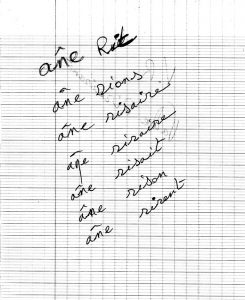 âne Rit
âne rions
âne risaire
âne riraire
âne risait
âne rison
âne rirent